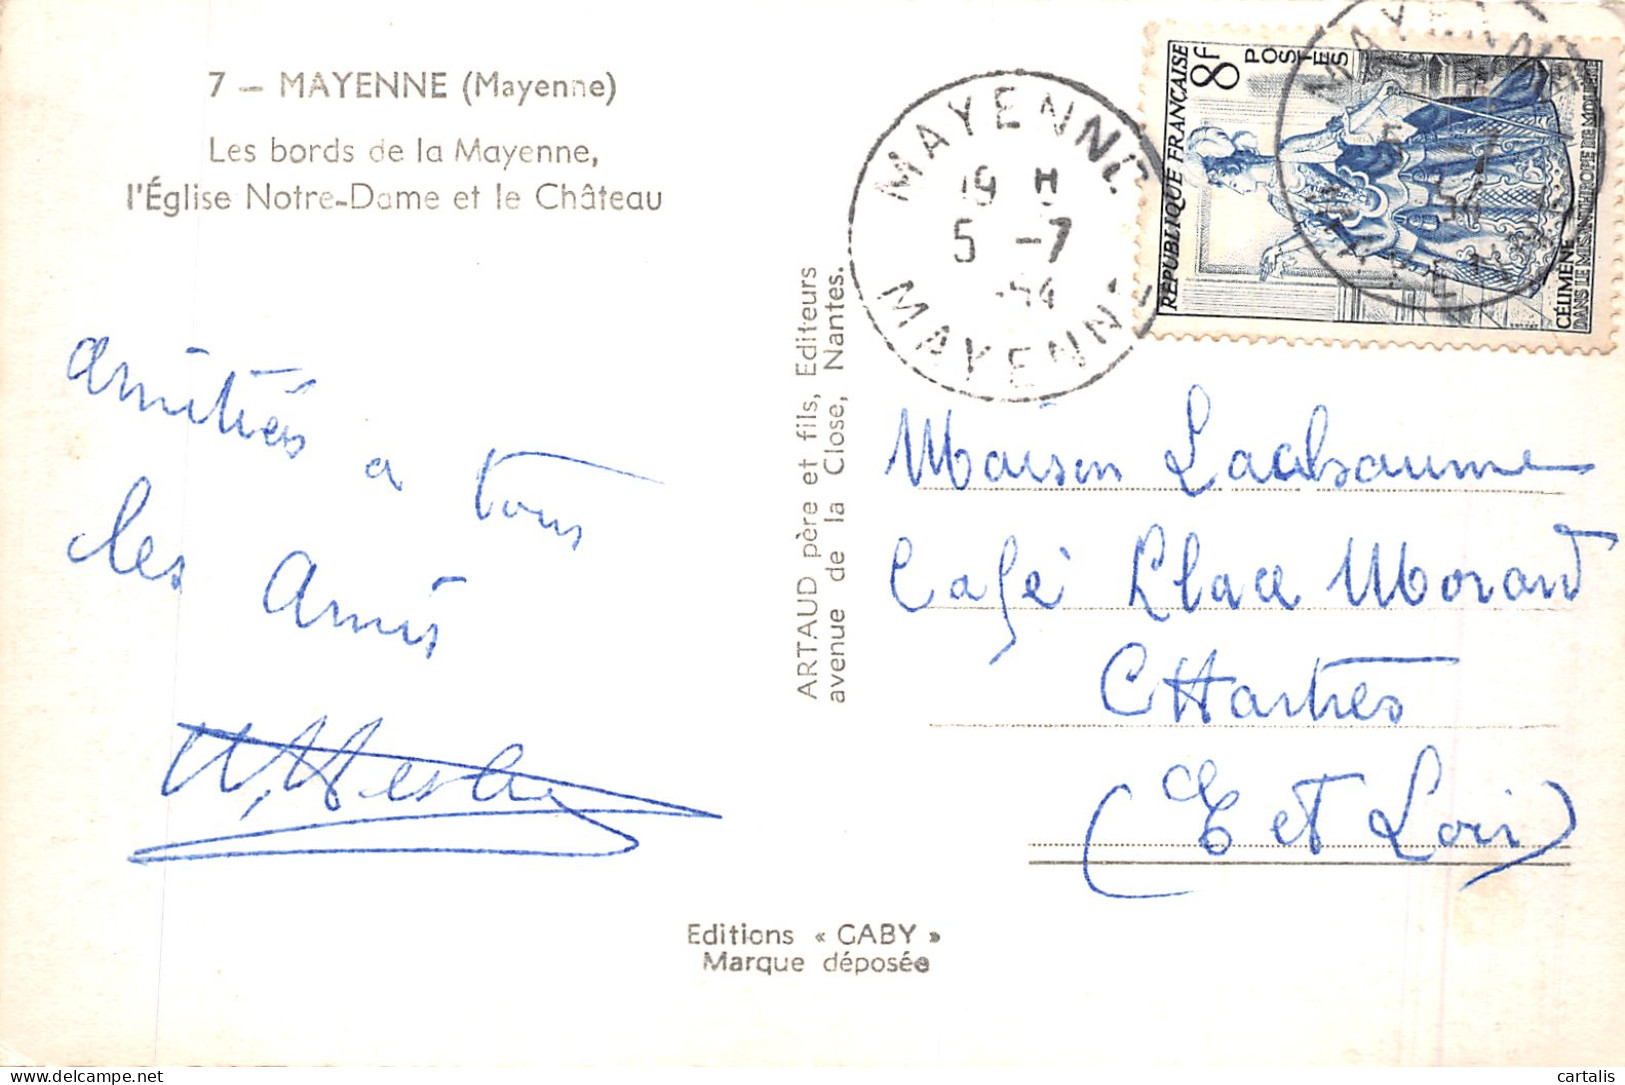 7 - MAYENNE (Mayenne)
Les bords de la Mayenne,
l'Église Notre-Dame et le Château
amitiés a tous
les amis
ARTAUD père et fils, Editeurs
avenue de la Close, Nantes.
Editions « GABY »
Marque déposée
MAYENNE
19 H
5 -7
54
MAYENNE
RÉPUBLIQUE FRANÇAISE
8F
POSTES
CÉLIMÈNE
DANS LE MISANTHROPE DE MOLIÈRE
MAYENNE
5 -7
54
Maison
Café Place Morard
CHartres
(E et Loir)
cartalis